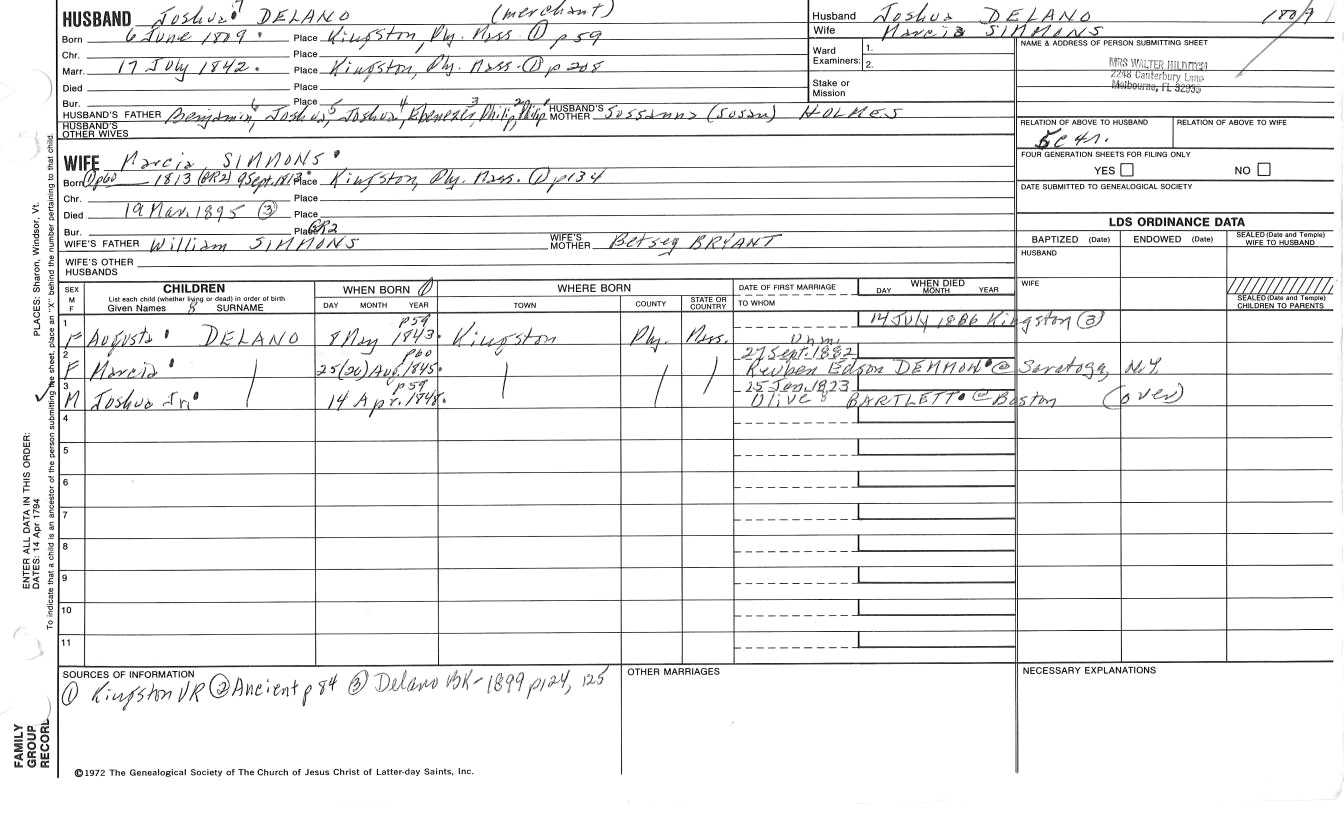 HUSBAND Joshua 7 DELANO (merchant)
Born 6 June 1809 Place Kingston, Ply. Mass. ① p59
Chr. Place
Marr. 17 July 1842. Place Kingston, Ply. Mass. ① p208
Died Place
Bur. Place
HUSBAND'S FATHER Benjamin 6, Joshua 5, Joshua 4, Ebenezer 3, Philip 2, Philip 1 HUSBAND'S MOTHER Sussanna (Susan) HOLMES
HUSBAND'S OTHER WIVES
WIFE Marcia SIMMONS
Born ① p60 1813 (GR2) 9 Sept. 1813 Place Kingston, Ply. Mass. ① p134
Chr. Place
Died 19 Mar. 1895 ③ Place
Bur. Place GR2
WIFE'S FATHER William SIMMONS WIFE'S MOTHER Betsey BRYANT
WIFE'S OTHER HUSBANDS
Husband Joshua DELANO
Wife Marcia SIMMONS
Ward Examiners: 1. 2.
Stake or Mission
NAME & ADDRESS OF PERSON SUBMITTING SHEET
MRS WALTER
2248 Canterbury Lane
Melbourne, FL 32935
RELATION OF ABOVE TO HUSBAND RELATION OF ABOVE TO WIFE
5c4r.
FOUR GENERATION SHEETS FOR FILING ONLY
YES NO
DATE SUBMITTED TO GENEALOGICAL SOCIETY
LDS ORDINANCE DATA
BAPTIZED (Date) ENDOWED (Date) SEALED (Date and Temple) WIFE TO HUSBAND
HUSBAND
WIFE
SEALED (Date and Temple) CHILDREN TO PARENTS
SEX M F
CHILDREN
List each child (whether living or dead) in order of birth
Given Names 8 SURNAME
WHEN BORN ①
DAY MONTH YEAR
WHERE BORN
TOWN COUNTY STATE OR COUNTRY
DATE OF FIRST MARRIAGE
TO WHOM
WHEN DIED
DAY MONTH YEAR
1 F Augusta DELANO 8 May 1843 p59 Kingston Ply. Mass. Unm. 14 July 1886 Kingston (3)
2 F Marcia 25(26) Aug. 1845. p60 27 Sept. 1882 Reuben Edson DEMMON @ Saratoga, N.Y.
3 M Joshua Jr. 14 Apr. 1848. p59 25 Jan. 1823 Olive B BARTLETT @ Boston (over)
4
5
6
7
8
9
10
11
SOURCES OF INFORMATION
① Kingston VR ② Ancient p 84 ③ Delano BK-1899 p124, 125
OTHER MARRIAGES
NECESSARY EXPLANATIONS
©1972 The Genealogical Society of The Church of Jesus Christ of Latter-day Saints, Inc.
PLACES: Sharon, Windsor, Vt.
ENTER ALL DATA IN THIS ORDER:
DATES: 14 Apr 1794
To indicate that a child is an ancestor of the person submitting the sheet, place an "X" behind the number pertaining to that child.
FAMILY GROUP RECORD